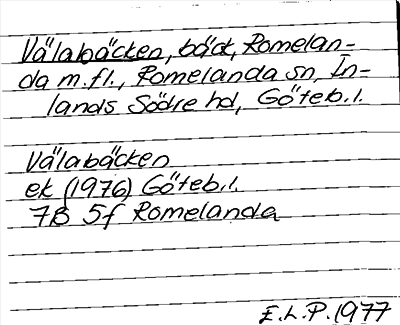 Välabäcken, bäck, Romelan-
da m.fl., Romelanda sn, In-
lands Södre hd, Göteb.l.
Välabäcken
ek (1976) Göteb.l.
7B 5f Romelanda
E.L.P. 1977